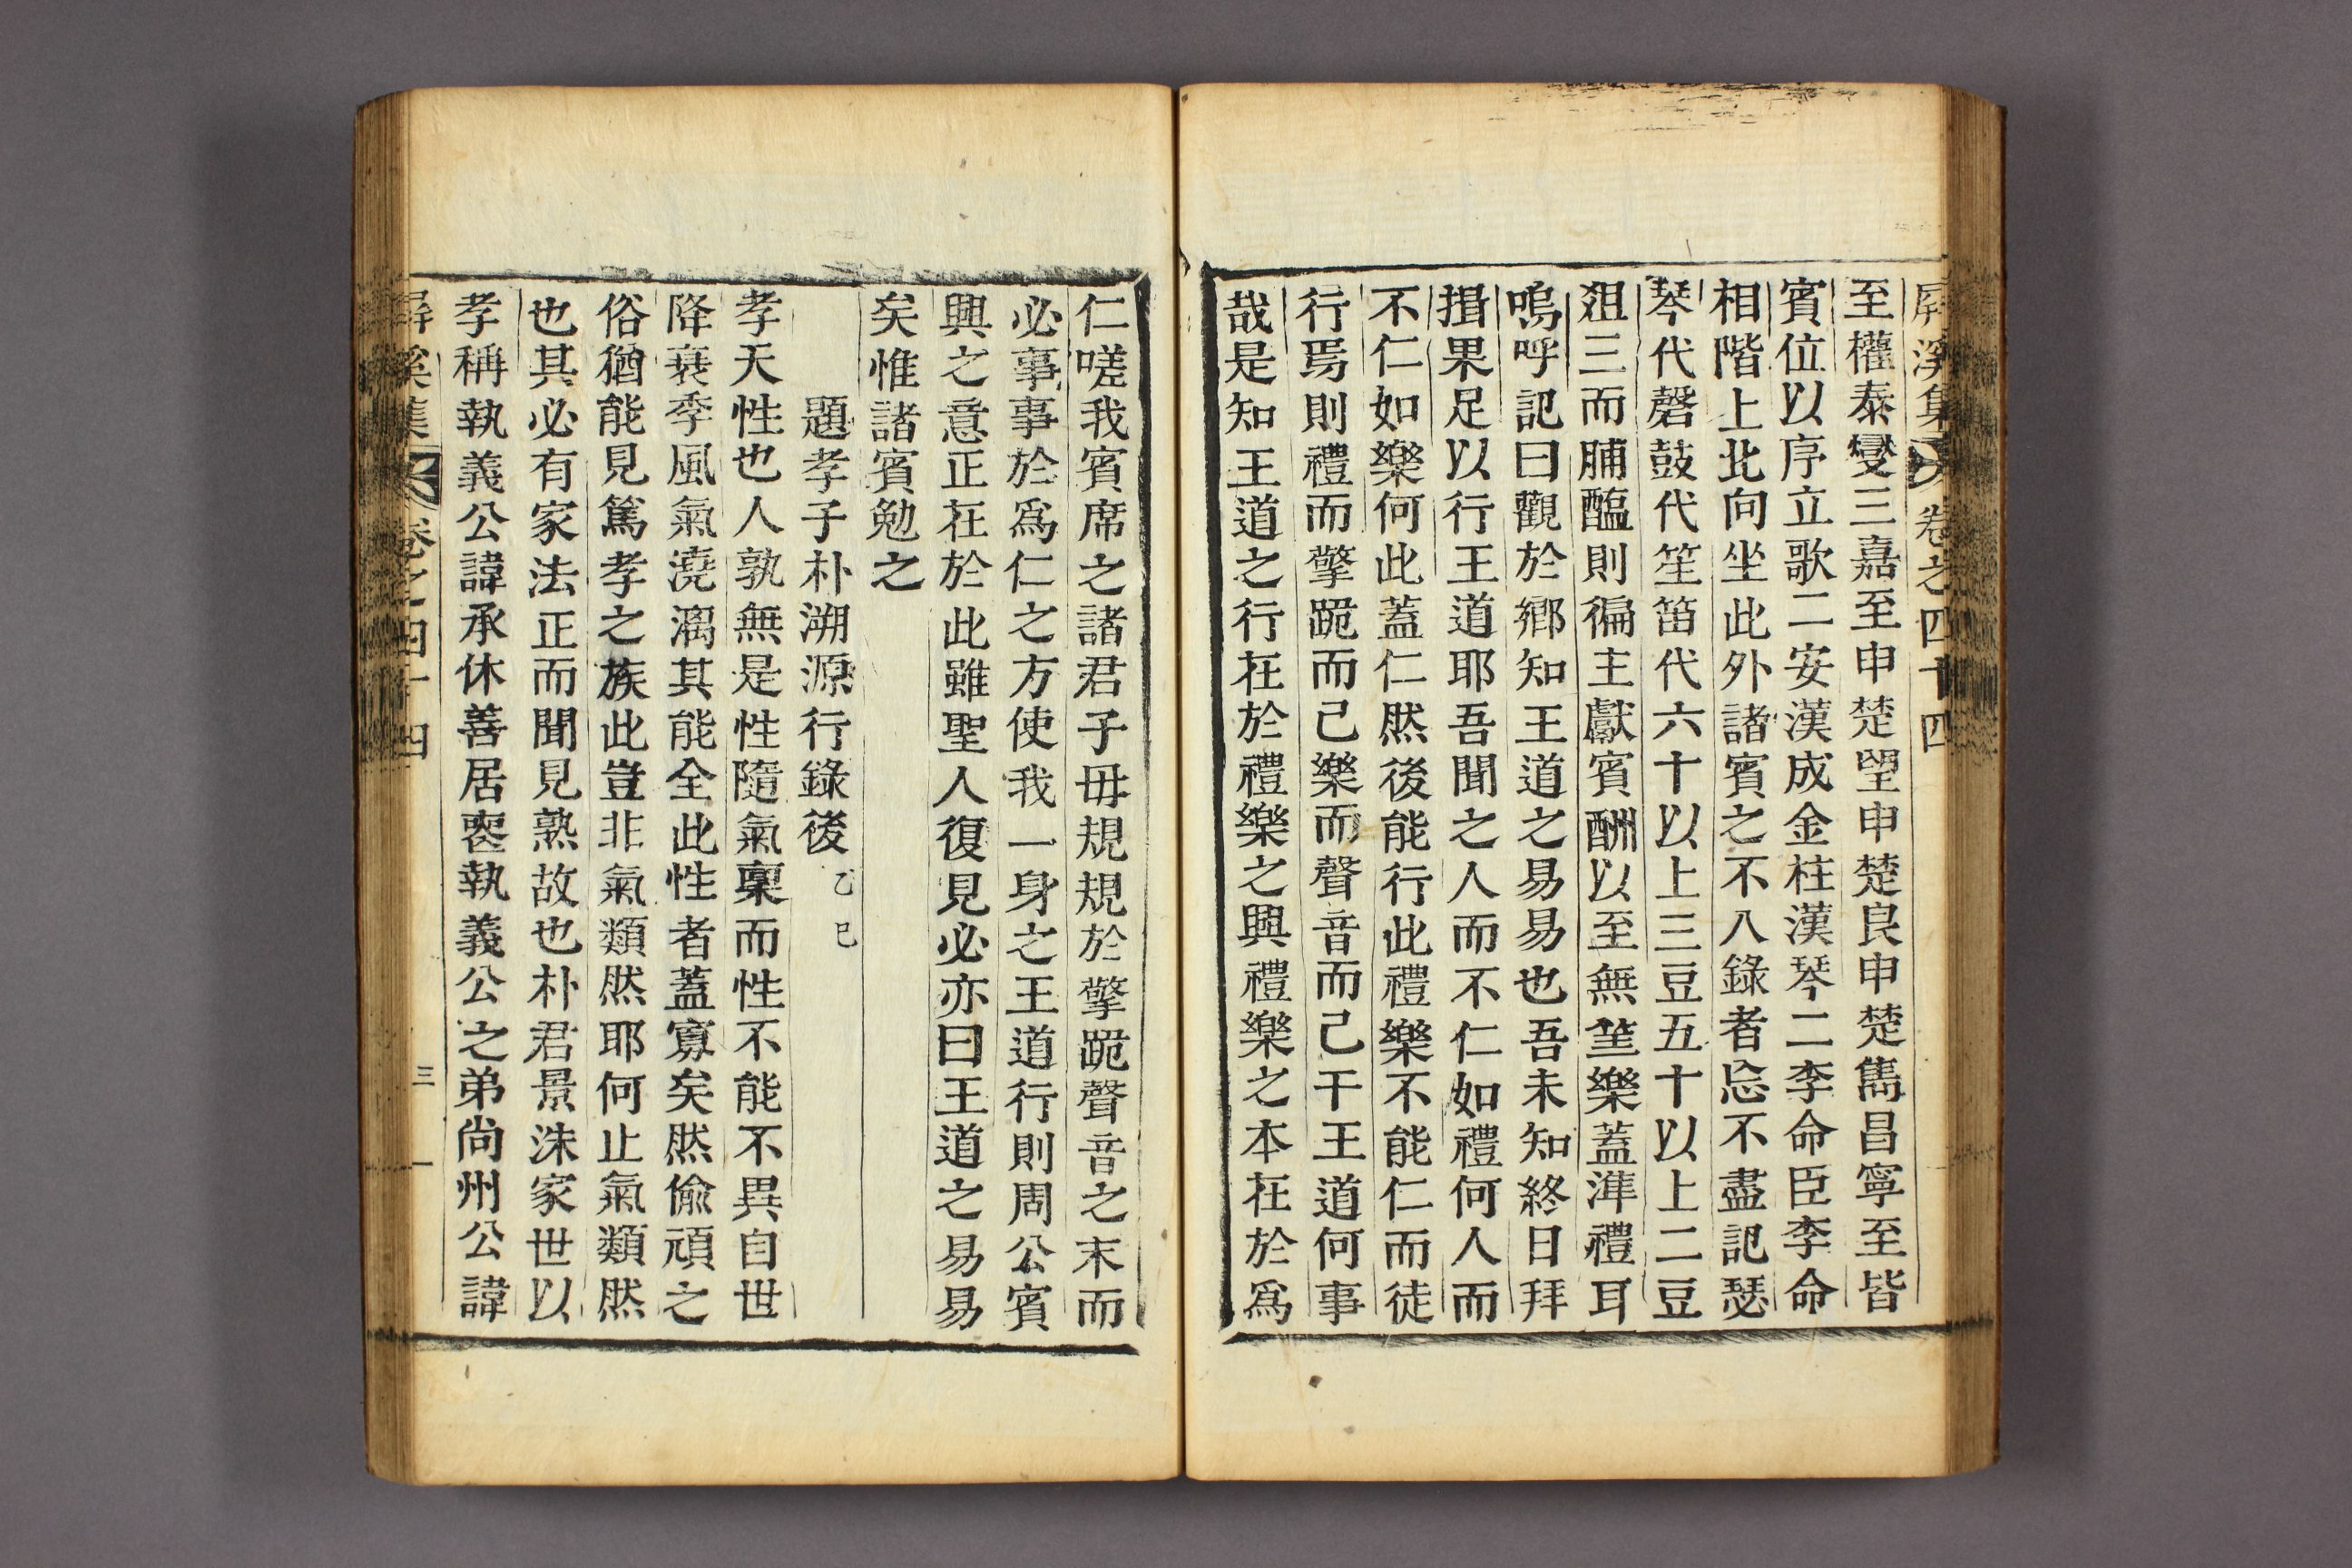 屛溪集 卷之四十四
至權泰燮三嘉至申楚望申楚良申楚雋昌寧至皆
賓位以序立歌二安漢成金柱漢琴二李命臣李命
相階上北向坐此外諸賓之不入錄者忘不盡記瑟
琴代磬鼓代笙笛代六十以上三豆五十以上二豆
俎三而脯醢則徧主獻賓酬以至無筭樂蓋準禮耳
嗚呼記曰觀於鄕知王道之易易也吾未知終日拜
揖果足以行王道耶吾聞之人而不仁如禮何人而
不仁如樂何此蓋仁然後能行此禮樂不能仁而徒
行焉則禮而擎跽而已樂而聲音而已干王道何事
哉是知王道之行在於禮樂之興禮樂之本在於爲
仁嗟我賓席之諸君子毋規規於擎跽聲音之末而
必事事於爲仁之方使我一身之王道行則周公賓
興之意正在於此雖聖人復見必亦曰王道之易易
矣惟諸賓勉之
題孝子朴溯源行錄後 乙巳
孝天性也人孰無是性隨氣稟而性不能不異自世
降衰季風氣澆漓其能全此性者蓋寡矣然偸頑之
俗猶能見篤孝之族此豈非氣類然耶何止氣類然
也其必有家法正而聞見熟故也朴君景洙家世以
孝稱執義公諱承休善居喪執義公之弟尙州公諱
屛溪集 卷之四十四 三一